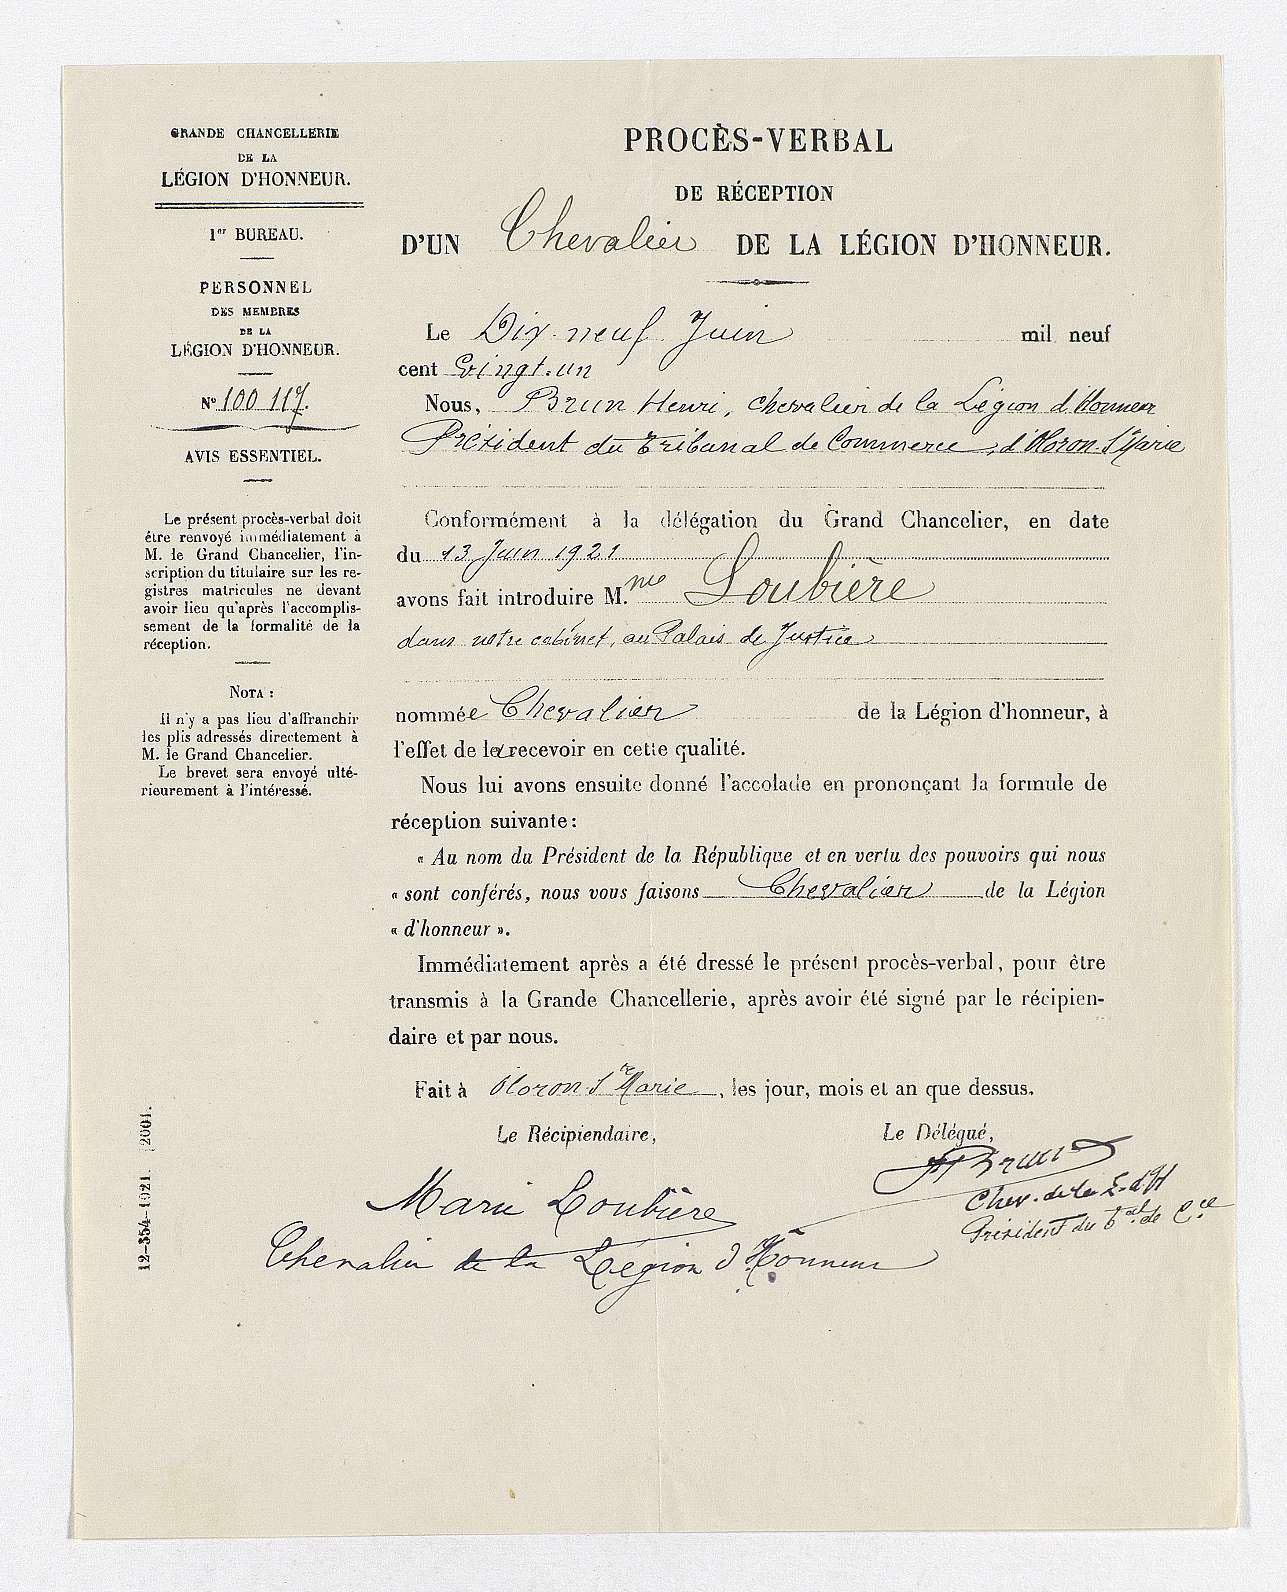 GRANDE CHANCELLERIE
DE LA
LÉGION D'HONNEUR.
1er BUREAU.
PERSONNEL
DES MEMBRES
DE LA
LÉGION D'HONNEUR.
N° 100 117.
AVIS ESSENTIEL.
Le présent procès-verbal doit
être renvoyé immédiatement à
M. le Grand Chancelier, l'in-
scription du titulaire sur les re-
gistres matricules ne devant
avoir lieu qu'après l'accomplis-
sement de la formalité de la
réception.
NOTA :
Il n'y a pas lieu d'affranchir
les plis adressés directement à
M. le Grand Chancelier.
Le brevet sera envoyé ulté-
rieurement à l'intéressé.
12-354-1921. [2001.
PROCÈS-VERBAL
DE RÉCEPTION
D'UN Chevalier DE LA LÉGION D'HONNEUR.
Le Dix-neuf Juin mil neuf
cent Vingt-un
Nous, Brun Henri, Chevalier de la Légion d'Honneur
Président du Tribunal de Commerce d'Oloron-Ste Marie
Conformément à la délégation du Grand Chancelier, en date
du 13 Juin 1921
avons fait introduire M.me Loubière
dans notre cabinet, au Palais de Justice
nommée Chevalier de la Légion d'honneur, à
l'effet de la recevoir en cette qualité.
Nous lui avons ensuite donné l'accolade en prononçant la formule de
réception suivante :
« Au nom du Président de la République et en vertu des pouvoirs qui nous
« sont conférés, nous vous faisons Chevalier de la Légion
« d'honneur ».
Immédiatement après a été dressé le présent procès-verbal, pour être
transmis à la Grande Chancellerie, après avoir été signé par le récipien-
daire et par nous.
Fait à Oloron-Ste Marie, les jour, mois et an que dessus.
Le Récipiendaire,
Marie Loubière
Chevalier de la Légion d'Honneur
Le Délégué,
HBrun
Chev. de la L. d'H
Président du Tal de Cce